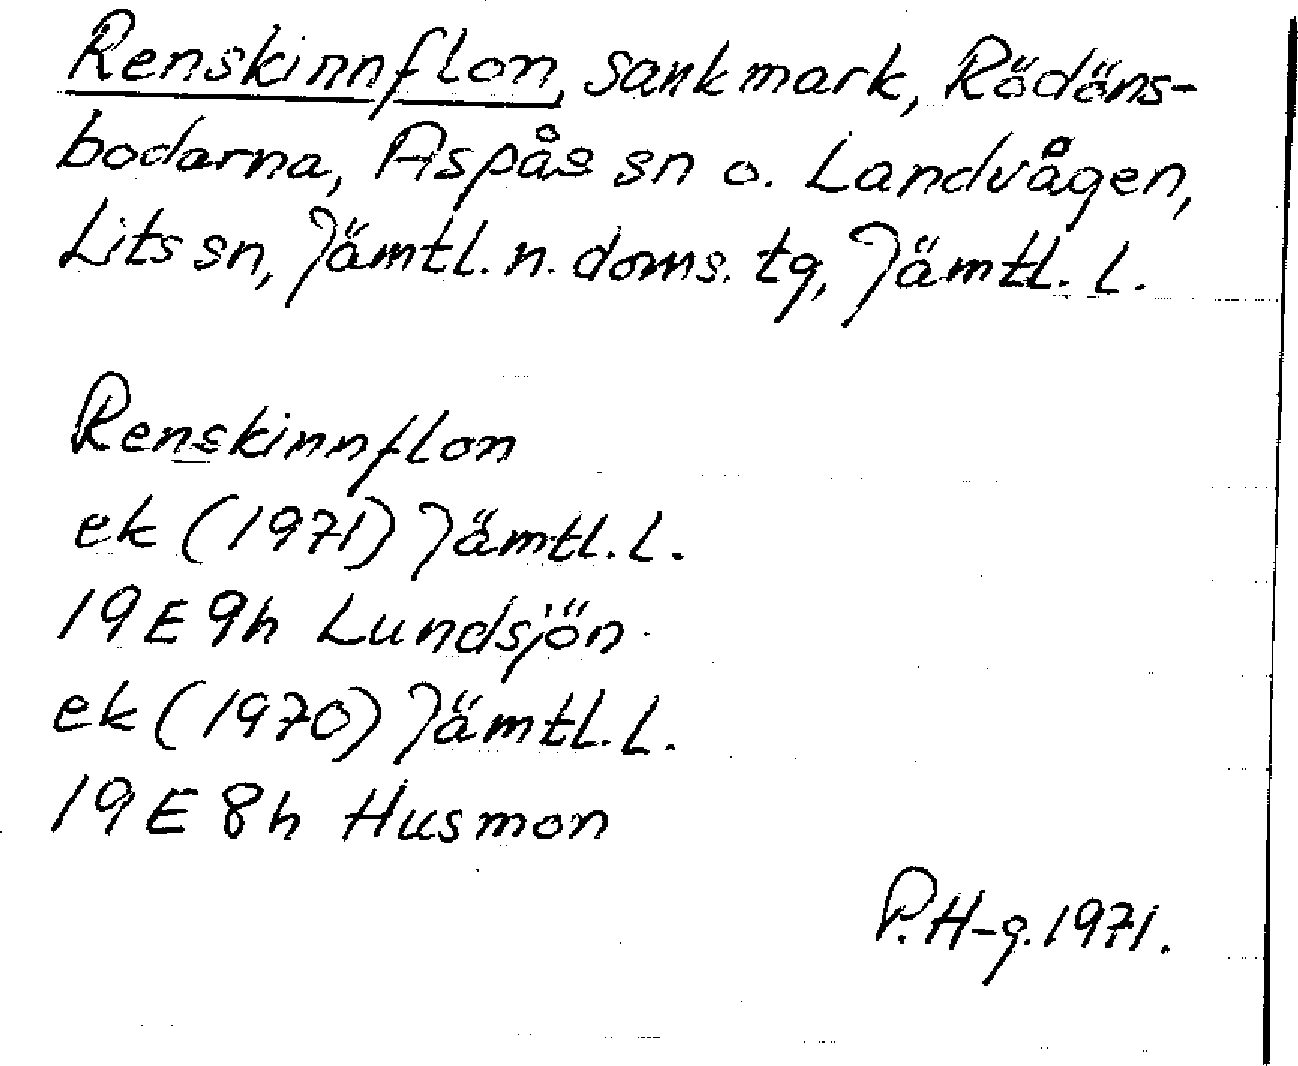 Renskinnflon, sankmark, Rödöns-
bodarna, Aspås sn o. Landvågen,
Lits sn, Jämtl. n. doms. tg, Jämtl. l.
Renskinnflon
ek (1971) Jämtl. l.
19 E 9h Lundsjön
ek (1970) Jämtl. l.
19 E 8h Husmon
P. H-g. 1971.